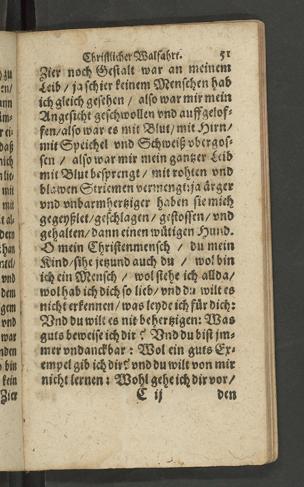 Christlicher Walfahrt. 51
Zier noch Gestalt war an meinem
Leib / ja schier keinem Menschen hab
ich gleich gesehen / also war mir mein
Angesicht geschwollen vnd auffgelof-
fen / also war es mit Blut / mit Hirn /
mit Speichel vnd Schweiß vbergos-
sen / also war mir mein gantzer Leib
mit Blut besprengt / mit rohten vnd
blawen Striemen vermengt: ja ärger
vnd vnbarmhertziger haben sie mich
gegeyßlet / geschlagen / gestossen / vnd
gehalten / dann einen wütigen Hund.
O mein Christenmensch / du mein
Kind / sihe jetzund auch du / wol bin
ich ein Mensch / wol stehe ich allda /
wol hab ich dich so lieb / vnd du wilt es
nicht erkennen / was leyde ich für dich:
Vnd du wilt es nit behertzigen: Was
guts beweise ich dir? Vnd du bist jm-
mer vndanckbar: Wol ein guts Ex-
empel gib ich dir? vnd du wilt von mir
nicht lernen: Wohl gehe ich dir vor /
C ij den